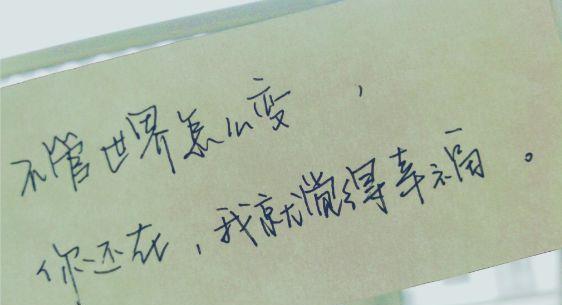 不管世界怎么变，
你还在，我就觉得幸福。